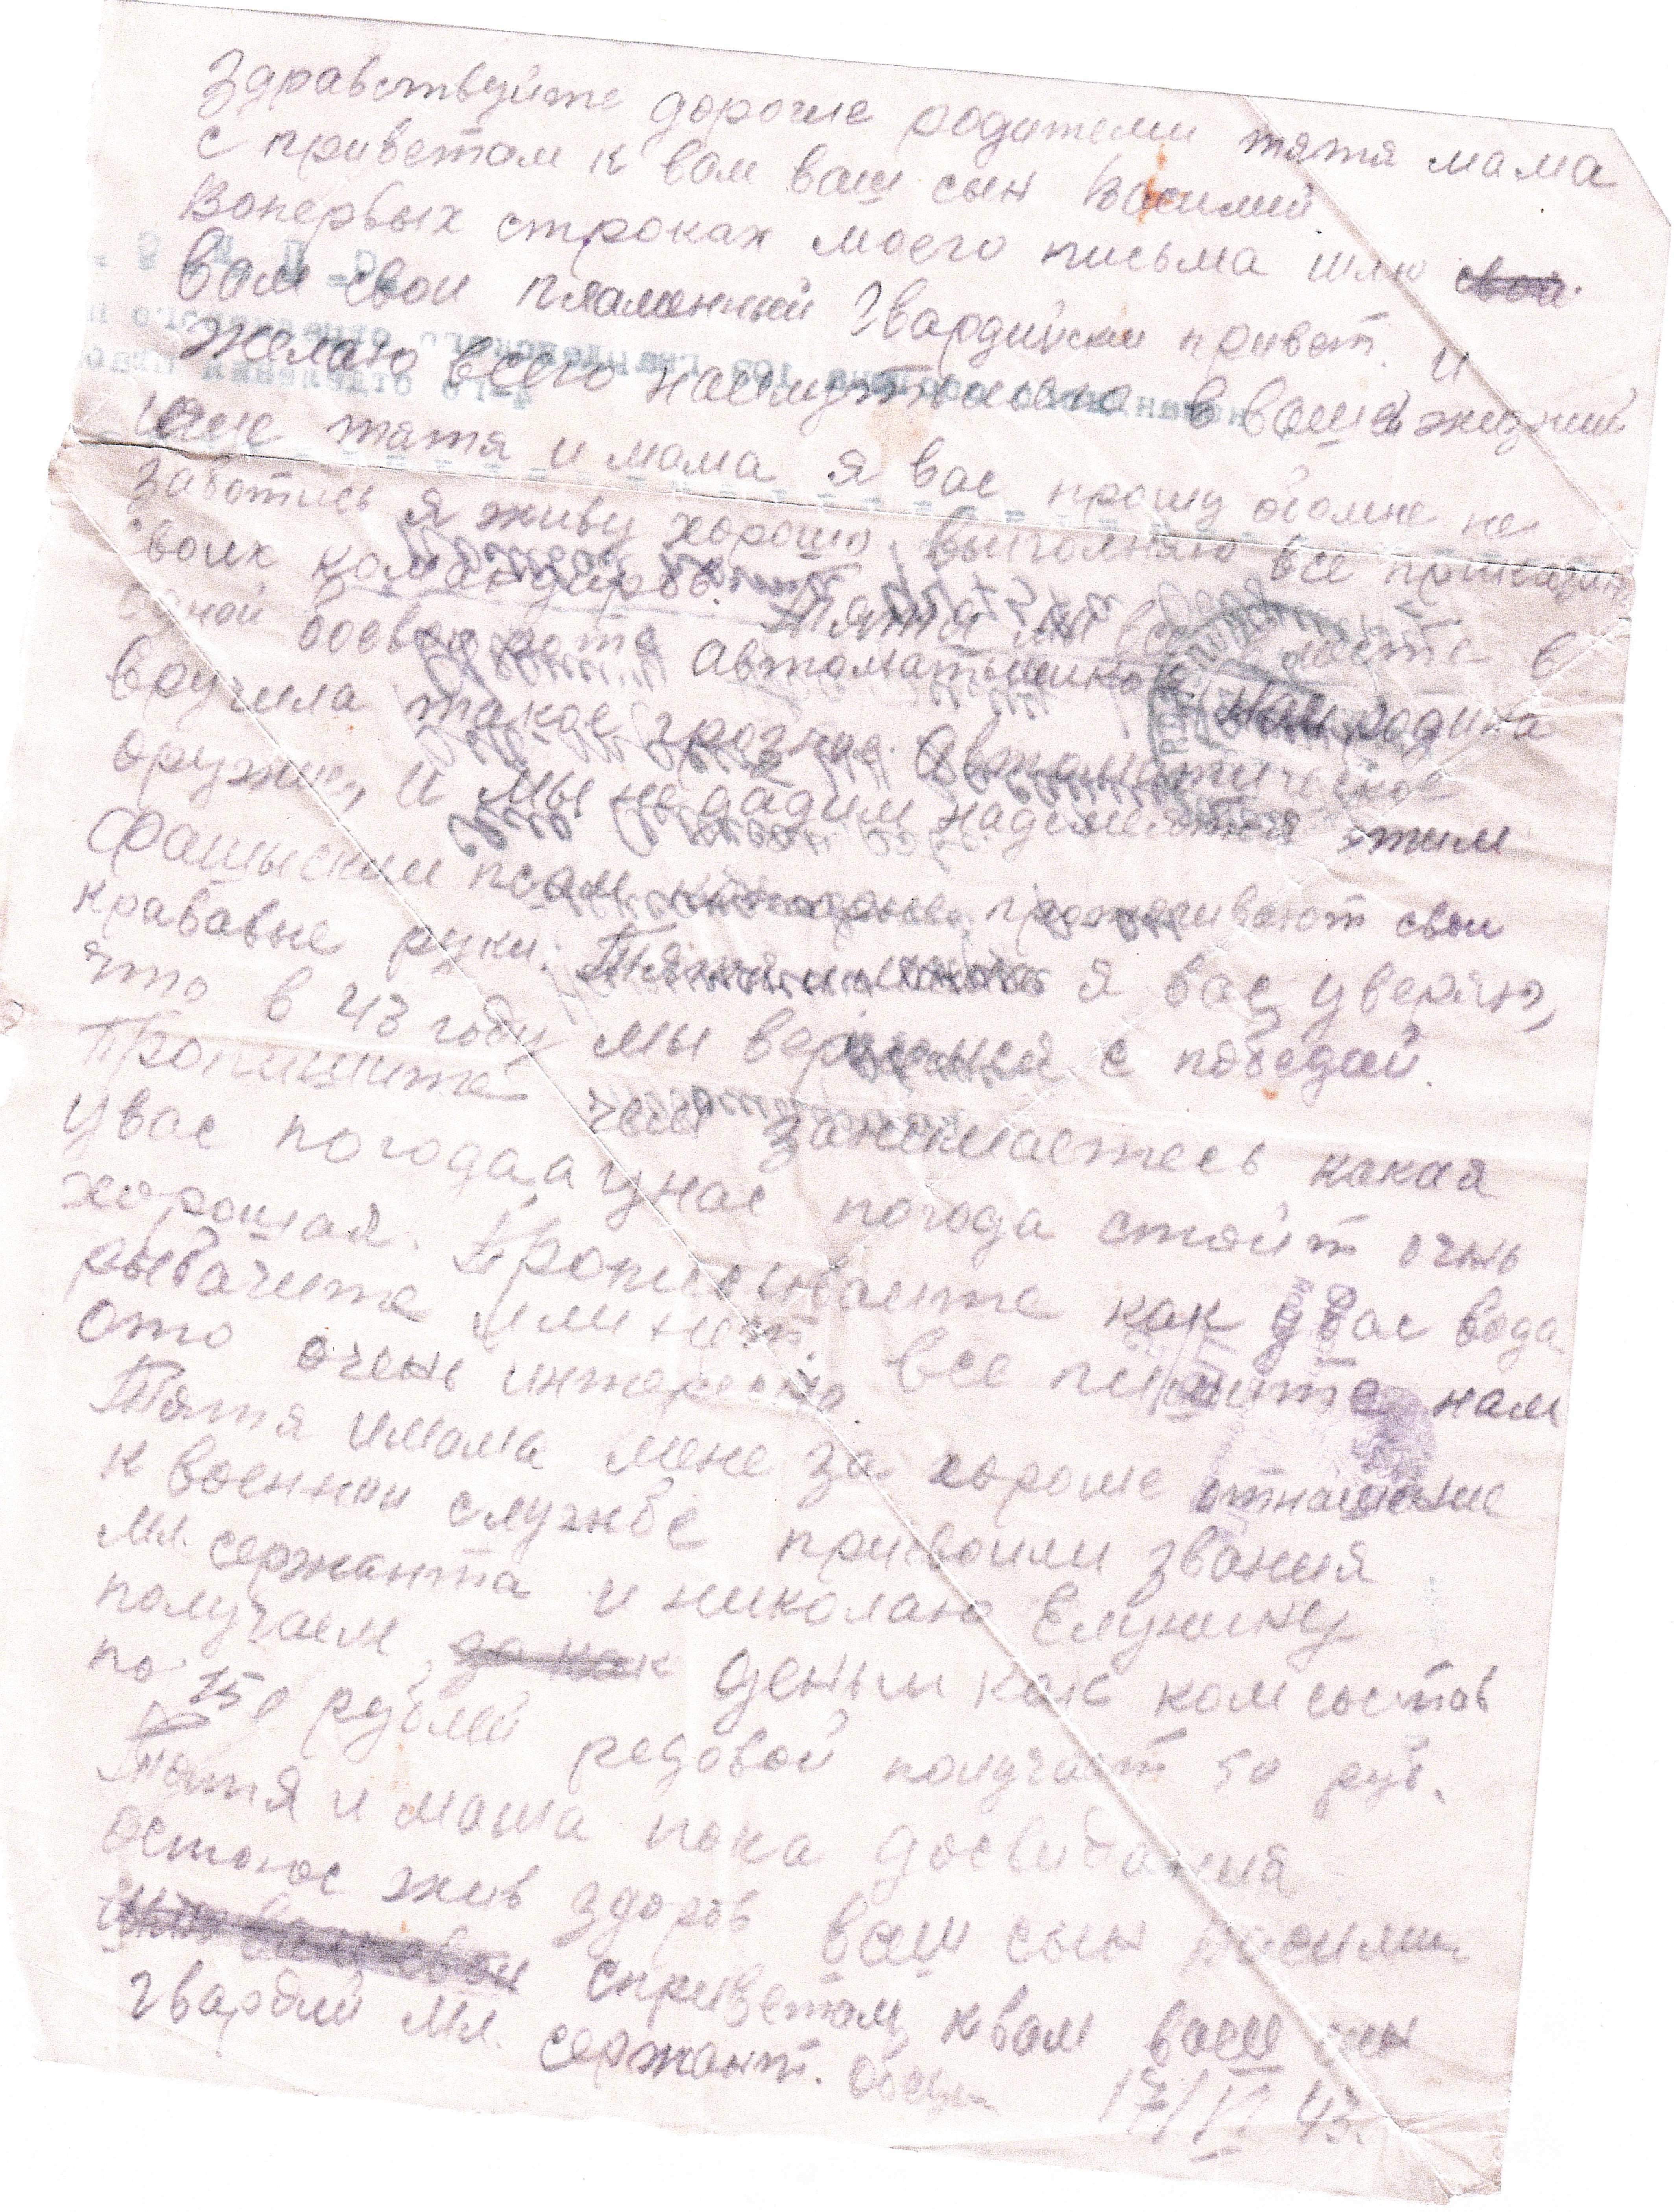 Здравствуйте дорогие родители тятя мама
с приветом к вам ваш сын Василий
Вопервых строках моего письма шлю свой
вам свои пламенный Гвардийски привет. и
желаю всего наилутшего в вашей жизнии
еще тятя и мама я вас прошу обомне не
заботись я живу хорошо, выполняю все
своих командиров. Тятя мы все в месте в
одной боевой роте автоматчиков нам родина
вручила такое грозное автоматическое
оружие, и мы не дадим этим
фашыским псам которые протягивают свои
крававые руки. Тятя и мама я вас уверяю,
что в 43 году мы вернемся с победой.
Пропишите чем занимаетесь какая
увас погода, а унас погода стоит очнь
хорошая. Прописывайте как увас вода
рыбачите или нет. все пишите нам
ото очень интересно
Тятя имама мене за хороше отнашение
к военнои службе присвоили звания
мл. сержанта и николаю Елунину
получаем да как деньги как комсостав
по 150 рублей редовой получает 50 руб.
Тятя и мама пока досвидания
остаюс жив здоров ваш сын Василии
сприветом квам ваш сын
гвардии мл. сержант.
17/VI 43.